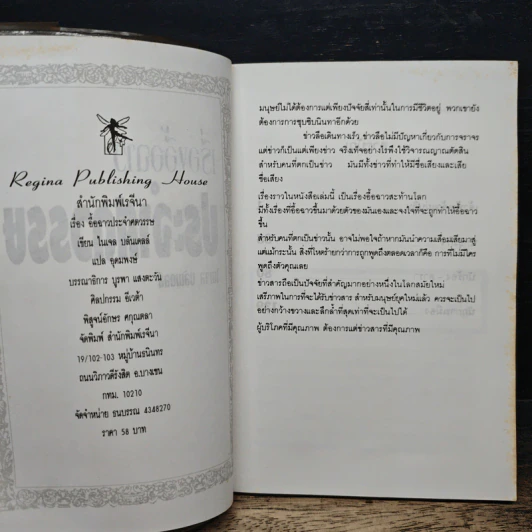 Regina Publishing House
สำนักพิมพ์เรจีนา
เรื่อง อื้อฉาวประจำศตวรรษ
เขียน ไนเจล บลันเดลล์
แปล อุดมพงษ์
บรรณาธิการ บูรพา แสงตะวัน
ศิลปกรรม อีเวต้า
พิสูจน์อักษร ศกุณตลา
จัดพิมพ์ สำนักพิมพ์เรจีนา
19/102-103 หมู่บ้านธนินทร
ถนนวิภาวดีรังสิต อ.บางเขน
กทม. 10210
จัดจำหน่าย ธนบรรณ 4348270
ราคา 58 บาท
มนุษย์ไม่ได้ต้องการแต่เพียงปัจจัยสี่เท่านั้นในการมีชีวิตอยู่ พวกเขายัง
ต้องการการซุบซิบนินทาอีกด้วย
ข่าวลือเดินทางเร็ว ข่าวลือไม่มีปัญหาเกี่ยวกับการจราจร
แต่ข่าวก็เป็นแต่เพียงข่าว จริงเท็จอย่างไรพึงใช้วิจารณญาณตัดสิน
สำหรับคนที่ตกเป็นข่าว มันมีทั้งข่าวที่ทำให้มีชื่อเสียงและเสีย
ชื่อเสียง
เรื่องราวในหนังสือเล่มนี้ เป็นเรื่องอื้อฉาวสะท้านโลก
มีทั้งเรื่องที่อื้อฉาวขึ้นมาด้วยตัวของมันเองและจงใจที่จะถูกทำให้อื้อฉาว
ขึ้น
สำหรับคนที่ตกเป็นข่าวนั้น อาจไม่พอใจถ้าหากมันนำความเสื่อมเสียมาสู่
แต่แม้กระนั้น สิ่งที่โหดร้ายกว่าการถูกพูดถึงตลอดเวลาก็คือ การที่ไม่มีใคร
พูดถึงตัวคุณเลย
ข่าวสารถือเป็นปัจจัยที่สำคัญมากอย่างหนึ่งในโลกสมัยใหม่
เสรีภาพในการที่จะได้รับข่าวสาร สำหรับมนุษย์ยุคใหม่แล้ว ควรจะเป็นไป
อย่างกว้างขวางและลึกล้ำที่สุดเท่าที่จะเป็นไปได้
ผู้บริโภคที่มีคุณภาพ ต้องการแต่ข่าวสารที่มีคุณภาพ